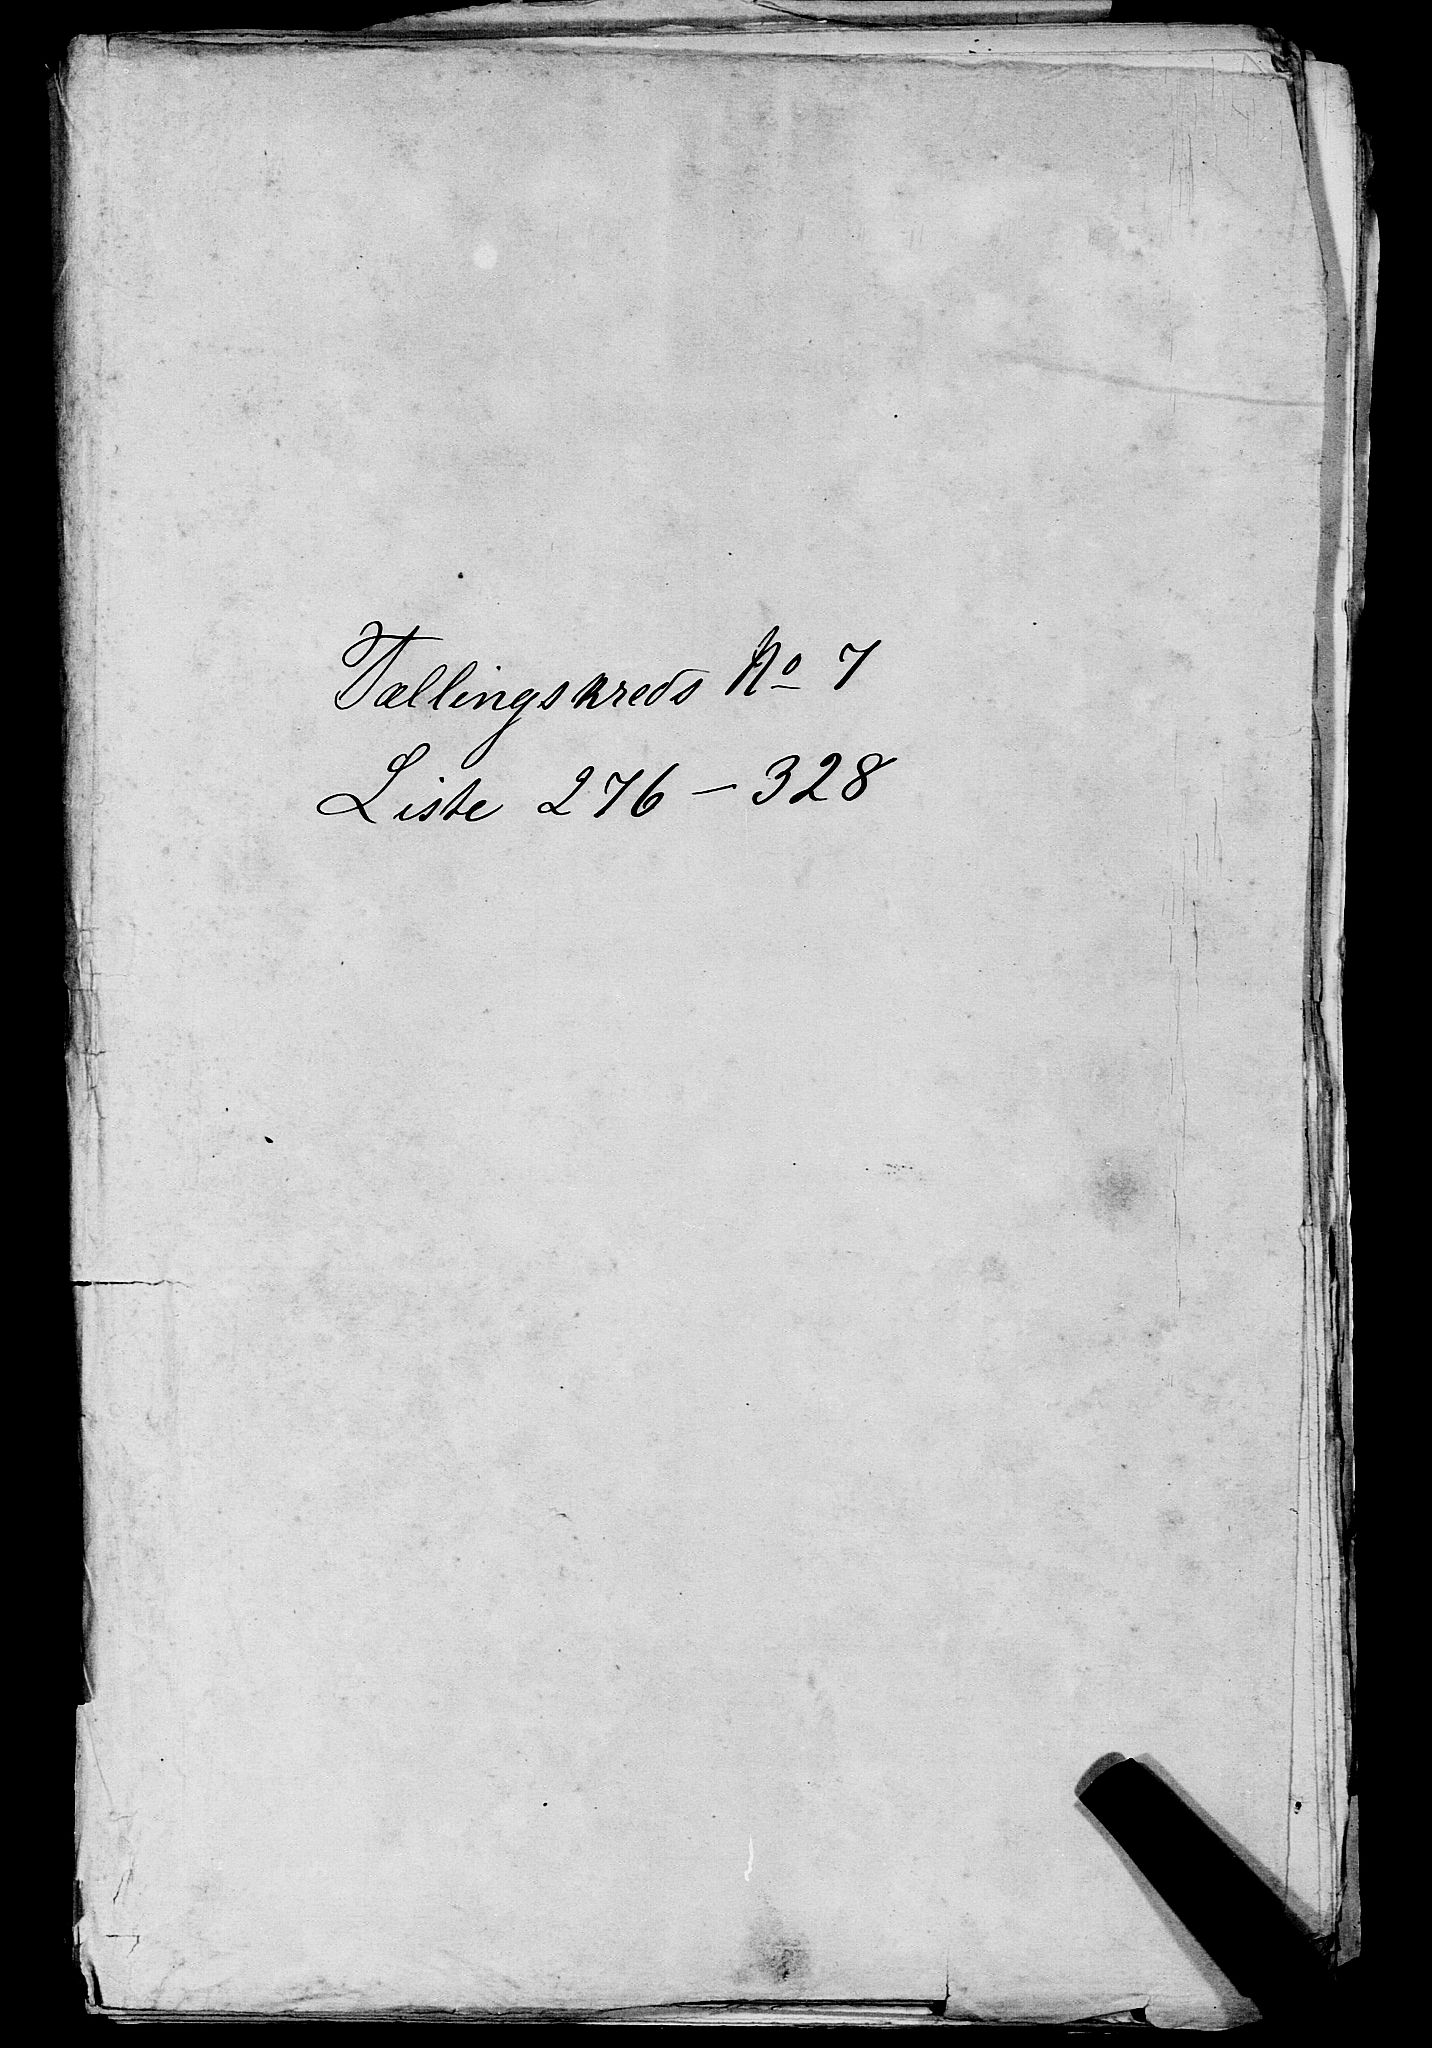 Tællingskreds No 7
Liste 276 - 328